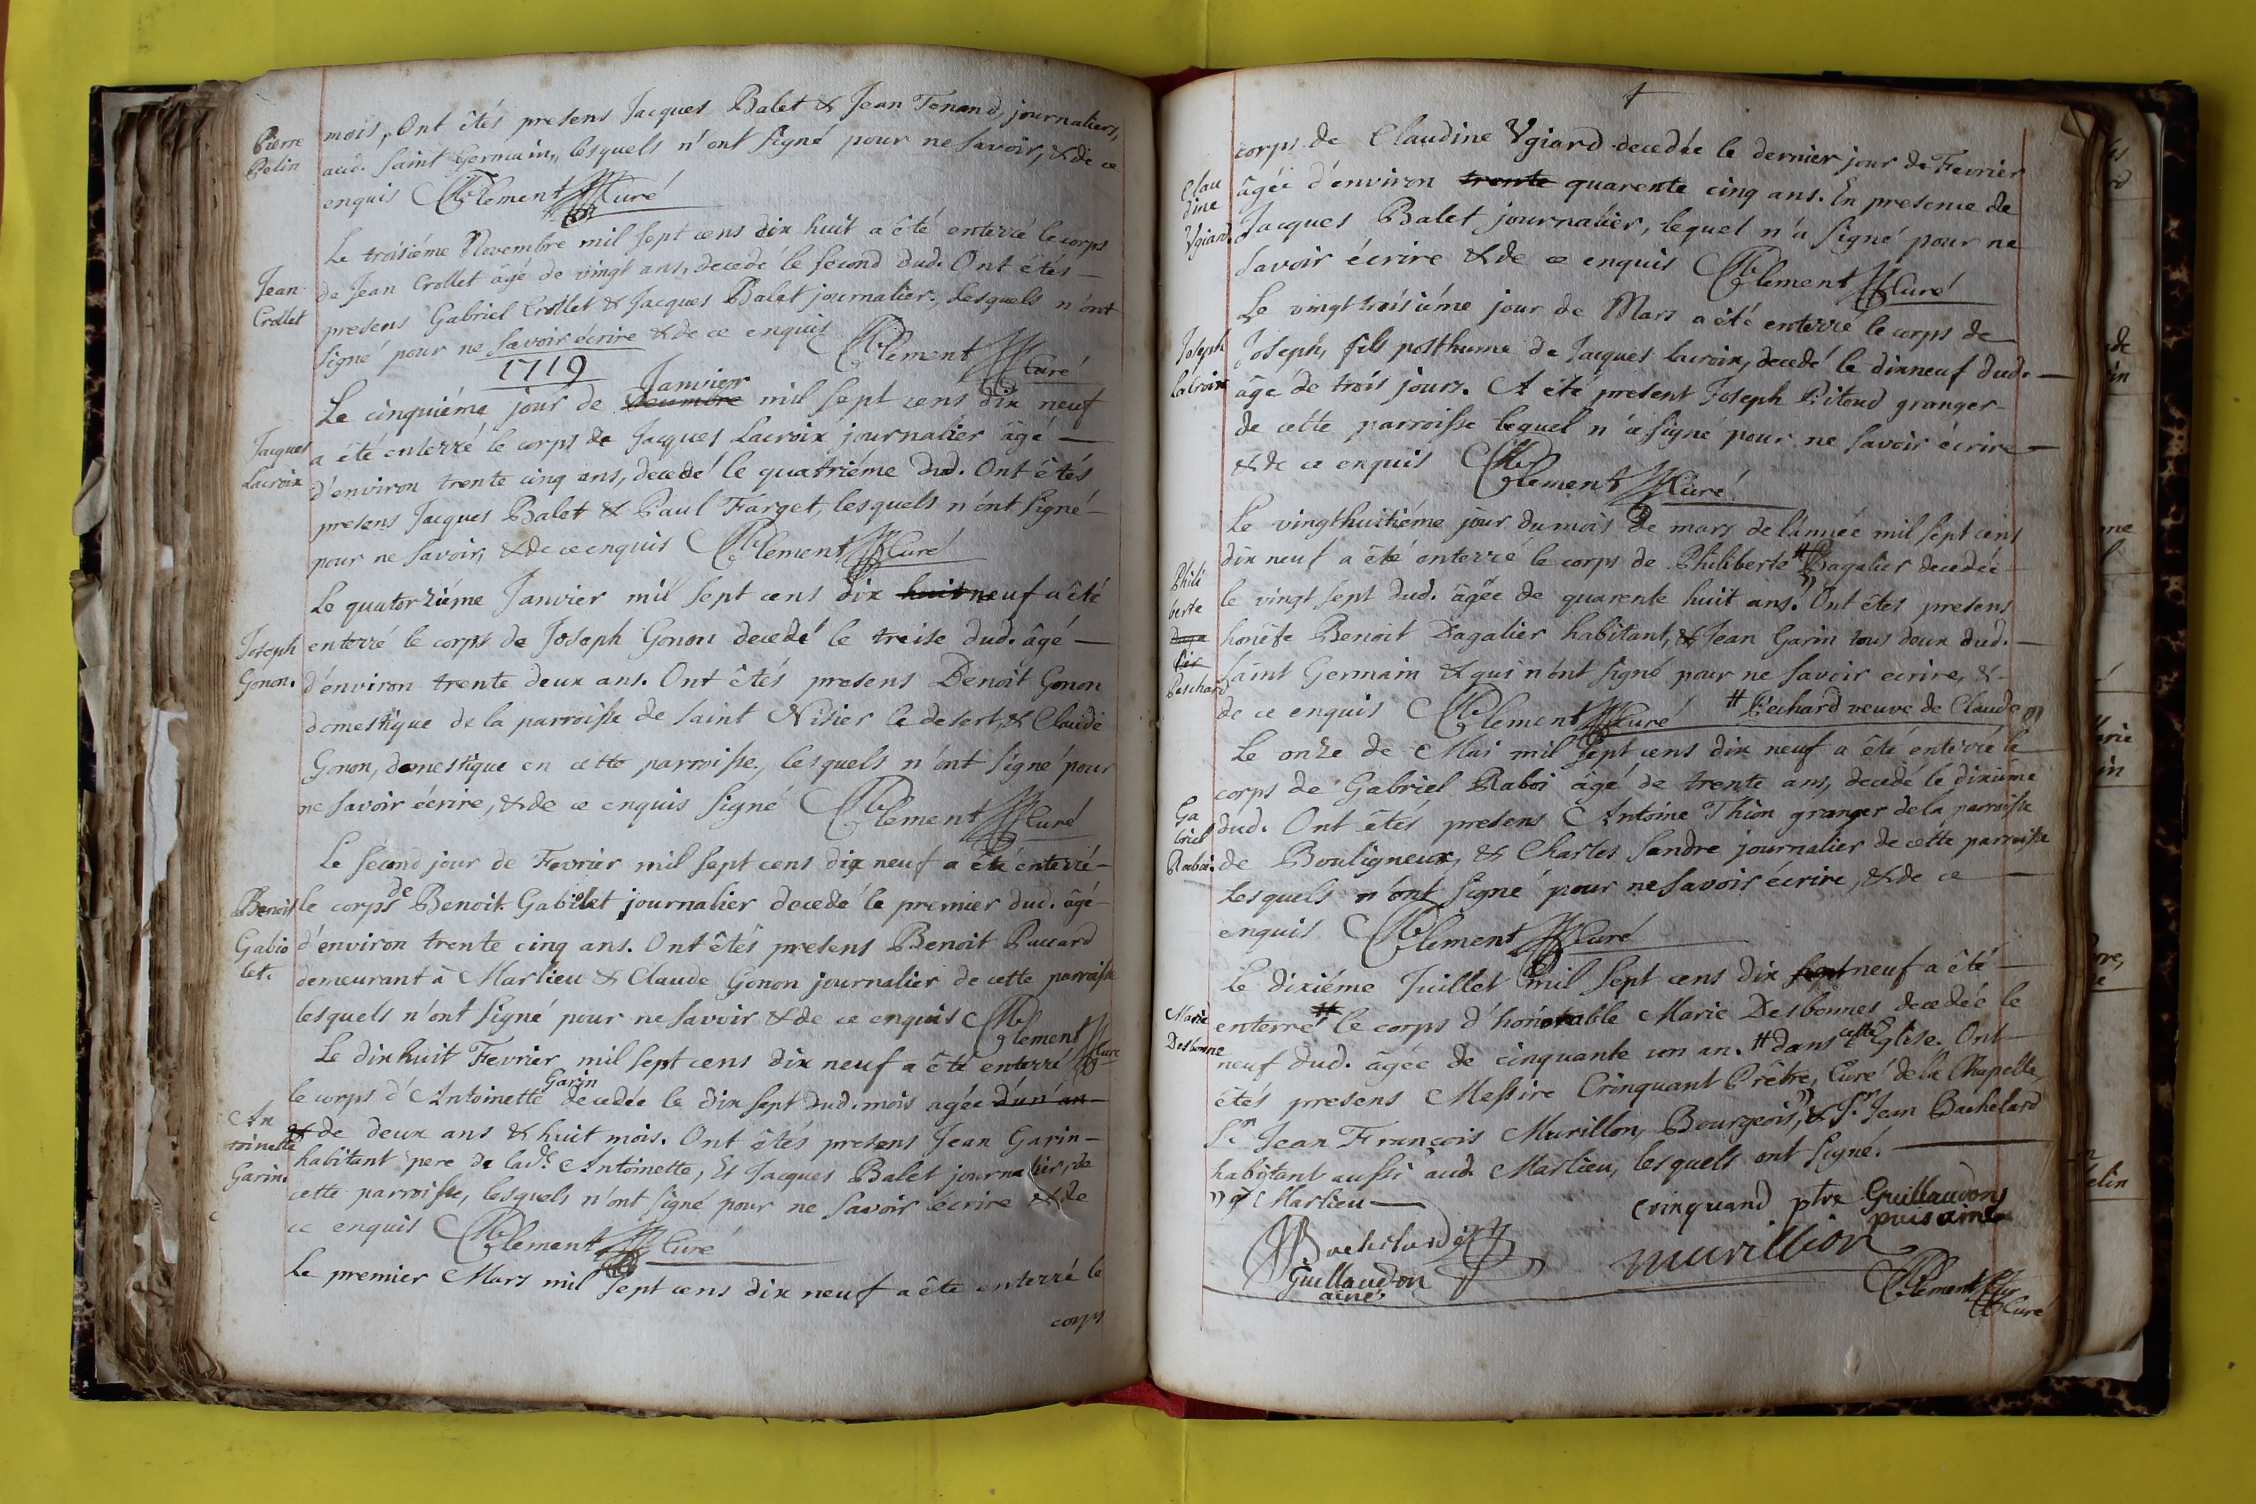 Pierre
Pelin
mois, Ont êtés presens Jacques Balet & Jean Tenand, journaliers,
aud. Saint Germain, lesquels n'ont signé pour ne savoir, & de ce
enquis Clement Curé
Le troisiéme Novembre mil sept cens dix huit a êté enterré le corps
Jean
Crollet
de Jean Crollet âgé de vingt ans, decedé le second dud. Ont êtés
presens Gabriel Crollet & Jacques Balet journalier, lesquels n'ont
signé pour ne savoir écrire & de ce enquis Clement Curé
1719
Le cinquiéme jour de Decembre Janvier mil sept cens dix neuf
Jacques
Lacroix
a êté enterré le corps de Jacques Lacroix journalier âgé
d'environ trente cinq ans, decedé le quatriéme dud. Ont êtés
presens Jacques Balet & Paul Farget, lesquels n'ont signé
pour ne savoir, & de ce enquis Clement Curé
Le quatorziéme Janvier mil sept cens dix huit neuf a êté
Joseph
Gonon.
enterré le corps de Joseph Gonon decedé le treise dud. âgé
d'environ trente deux ans. Ont êtés presens Benoit Gonon
domestique de la parroisse de saint Nisier le desert, & Claude
Gonon, domestique en cette parroisse, lesquels n'ont signé pour
ne savoir écrire, & de ce enquis signé Clement Curé
Le second jour de Fevrier mil sept cens dix neuf a êté enterré
Benoit
Gabio
let.
le corps de Benoit Gabiolet journalier decedé le premier dud. âgé
d'environ trente cinq ans. Ont êtés presens Benoit Puccard
demeurant à Marlieu & Claude Gonon journalier de cette parroisse
lesquels n'ont signé pour ne savoir & de ce enquis Clement Curé
Le dixhuit Fevrier mil sept cens dix neuf a êté enterré
An
toinette
Garin.
le corps d'Antoinette Garin decedée le dix sept dud. mois agée d'un an
& de deux ans & huit mois. Ont êtés presens Jean Garin
habitant pere de lad. Antoinette, Et Jacques Balet journalier, de
cette parroisse, lesquels n'ont signé pour ne savoir écrire & de
ce enquis Clement Curé
Le premier Mars mil sept cens dix neuf a êté enterré le
corps
corps de Claudine Vgiard decedée le dernier jour de Fevrier
Clau
dine
Vgiard
âgée d'environ trente quarente cinq ans. En presence de
Jacques Balet journalier, lequel n'a signé pour ne
savoir écrire & de ce enquis Clement Curé
Le vingt troisiéme jour de Mars a êté enterré le corps de
Joseph
Lacroix
Joseph, fils posthume de Jacques Lacroix, decedé le dixneuf dud.
âgé de trois jours. A été present Joseph Pitoud granger
de cette parroisse lequel n'a signé pour ne savoir écrire
& de ce enquis Clement Curé
Le vingthuitiéme jour du mois de mars de l'année mil sept cens
dix neuf a êté enterré le corps de Philiberte # Dagalier decedée
Phili
berte
Daga
lier
Peschard
le vingt sept dud. âgée de quarente huit ans. Ont êtes presens
honête Benoit Dagalier habitant, & Jean Garin tous deux dud.
Saint Germain & qui n'ont signé pour ne savoir ecrire, &
de ce enquis Clement Curé # Péchard veuve de Claude
Le onze de Mai mil sept cens dix neuf a êté enterré le
Ga
briel
Raboi.
corps de Gabriel Raboi âgé de trente ans, decedé le dixiéme
dud. Ont êtés presens Antoine Thion granger de la parroisse
de Bouligneux, & Charles Sandre journalier de cette parroisse
Lesquels n'ont signé pour ne savoir écrire, & de ce
enquis Clement Curé
Le dixiéme Juillet mil sept cens dix sept neuf a êté
Marie
Desbonne
enterré # le corps d'honorable Marie Desbonnes decedée le
neuf dud. âgée de cinquante un an. # dans cette Eglise. Ont
êtés presens Messire Crinquant Prêtre, Curé de la Chapelle,
Sr. Jean François Murillon, Bourgeois, & Sr. Jean Bachelard
habitant aussi aud. Marlieu, lesquels ont signé.
Marlieu
crinquand ptre Guillaudon
puis ainé
Bachelard
murillion
Guillaudon
ainé
Clement Curé